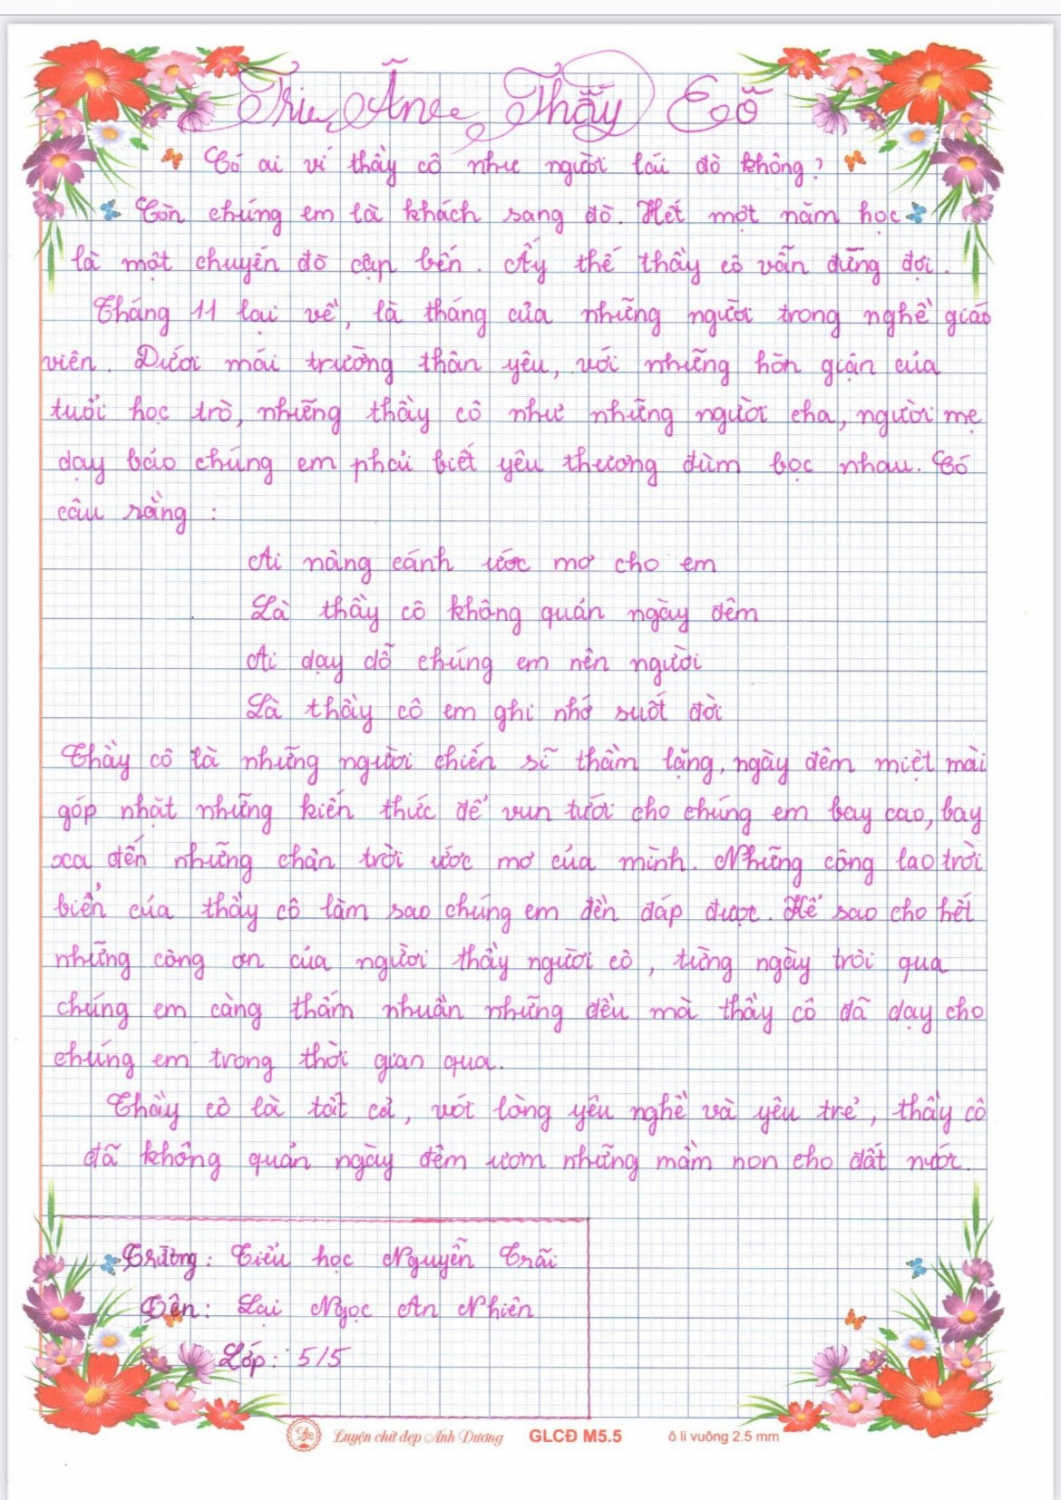 Tri Ân Thầy Cô
Có ai ví thầy cô như người lái đò không?
Còn chúng em là khách sang đò. Hết một năm học
là một chuyến đò cập bến. Ấy thế thầy cô vẫn đứng đợi.
Tháng 11 lại về, là tháng của những người trong nghề giáo
viên. Dưới mái trường thân yêu, với những hờn giận của
tuổi học trò, những thầy cô như những người cha, người mẹ
dạy bảo chúng em phải biết yêu thương đùm bọc nhau. Có
câu rằng :
Ai nâng cánh ước mơ cho em
Là thầy cô không quản ngày đêm
Ai dạy dỗ chúng em nên người
Là thầy cô em ghi nhớ suốt đời
Thầy cô là những người chiến sĩ thầm lặng, ngày đêm miệt mài
góp nhặt những kiến thức để vun tưới cho chúng em bay cao, bay
xa đến những chân trời ước mơ của mình. Những công lao trời
biển của thầy cô làm sao chúng em đền đáp được. Kể sao cho hết
những công ơn của người thầy người cô, từng ngày trôi qua
chúng em càng thấm nhuần những đều mà thầy cô đã dạy cho
chúng em trong thời gian qua.
Thầy cô là tất cả, với lòng yêu nghề và yêu trẻ, thầy cô
đã không quản ngày đêm ươm những mầm non cho đất nước.
Trường: Tiểu học Nguyễn Trãi
Tên: Lại Ngọc An Nhiên
Lớp: 5/5
Luyện chữ đẹp Ánh Dương GLCĐ M5.5 ô li vuông 2.5 mm